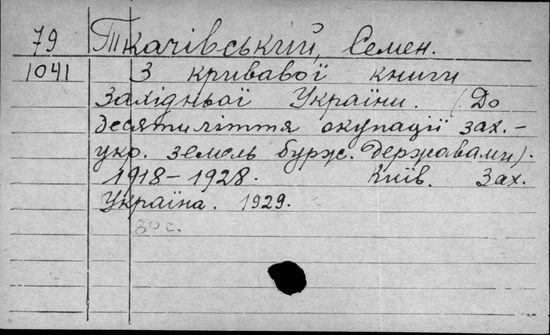 79 Ткачівський, Семен.
1041 З кривавої книги
Західньої України. (До
десятиліття окупації зах.-
укр. земель бурж. державами).
1918–1928. Київ. Зах.
Україна. 1929.
80 с.